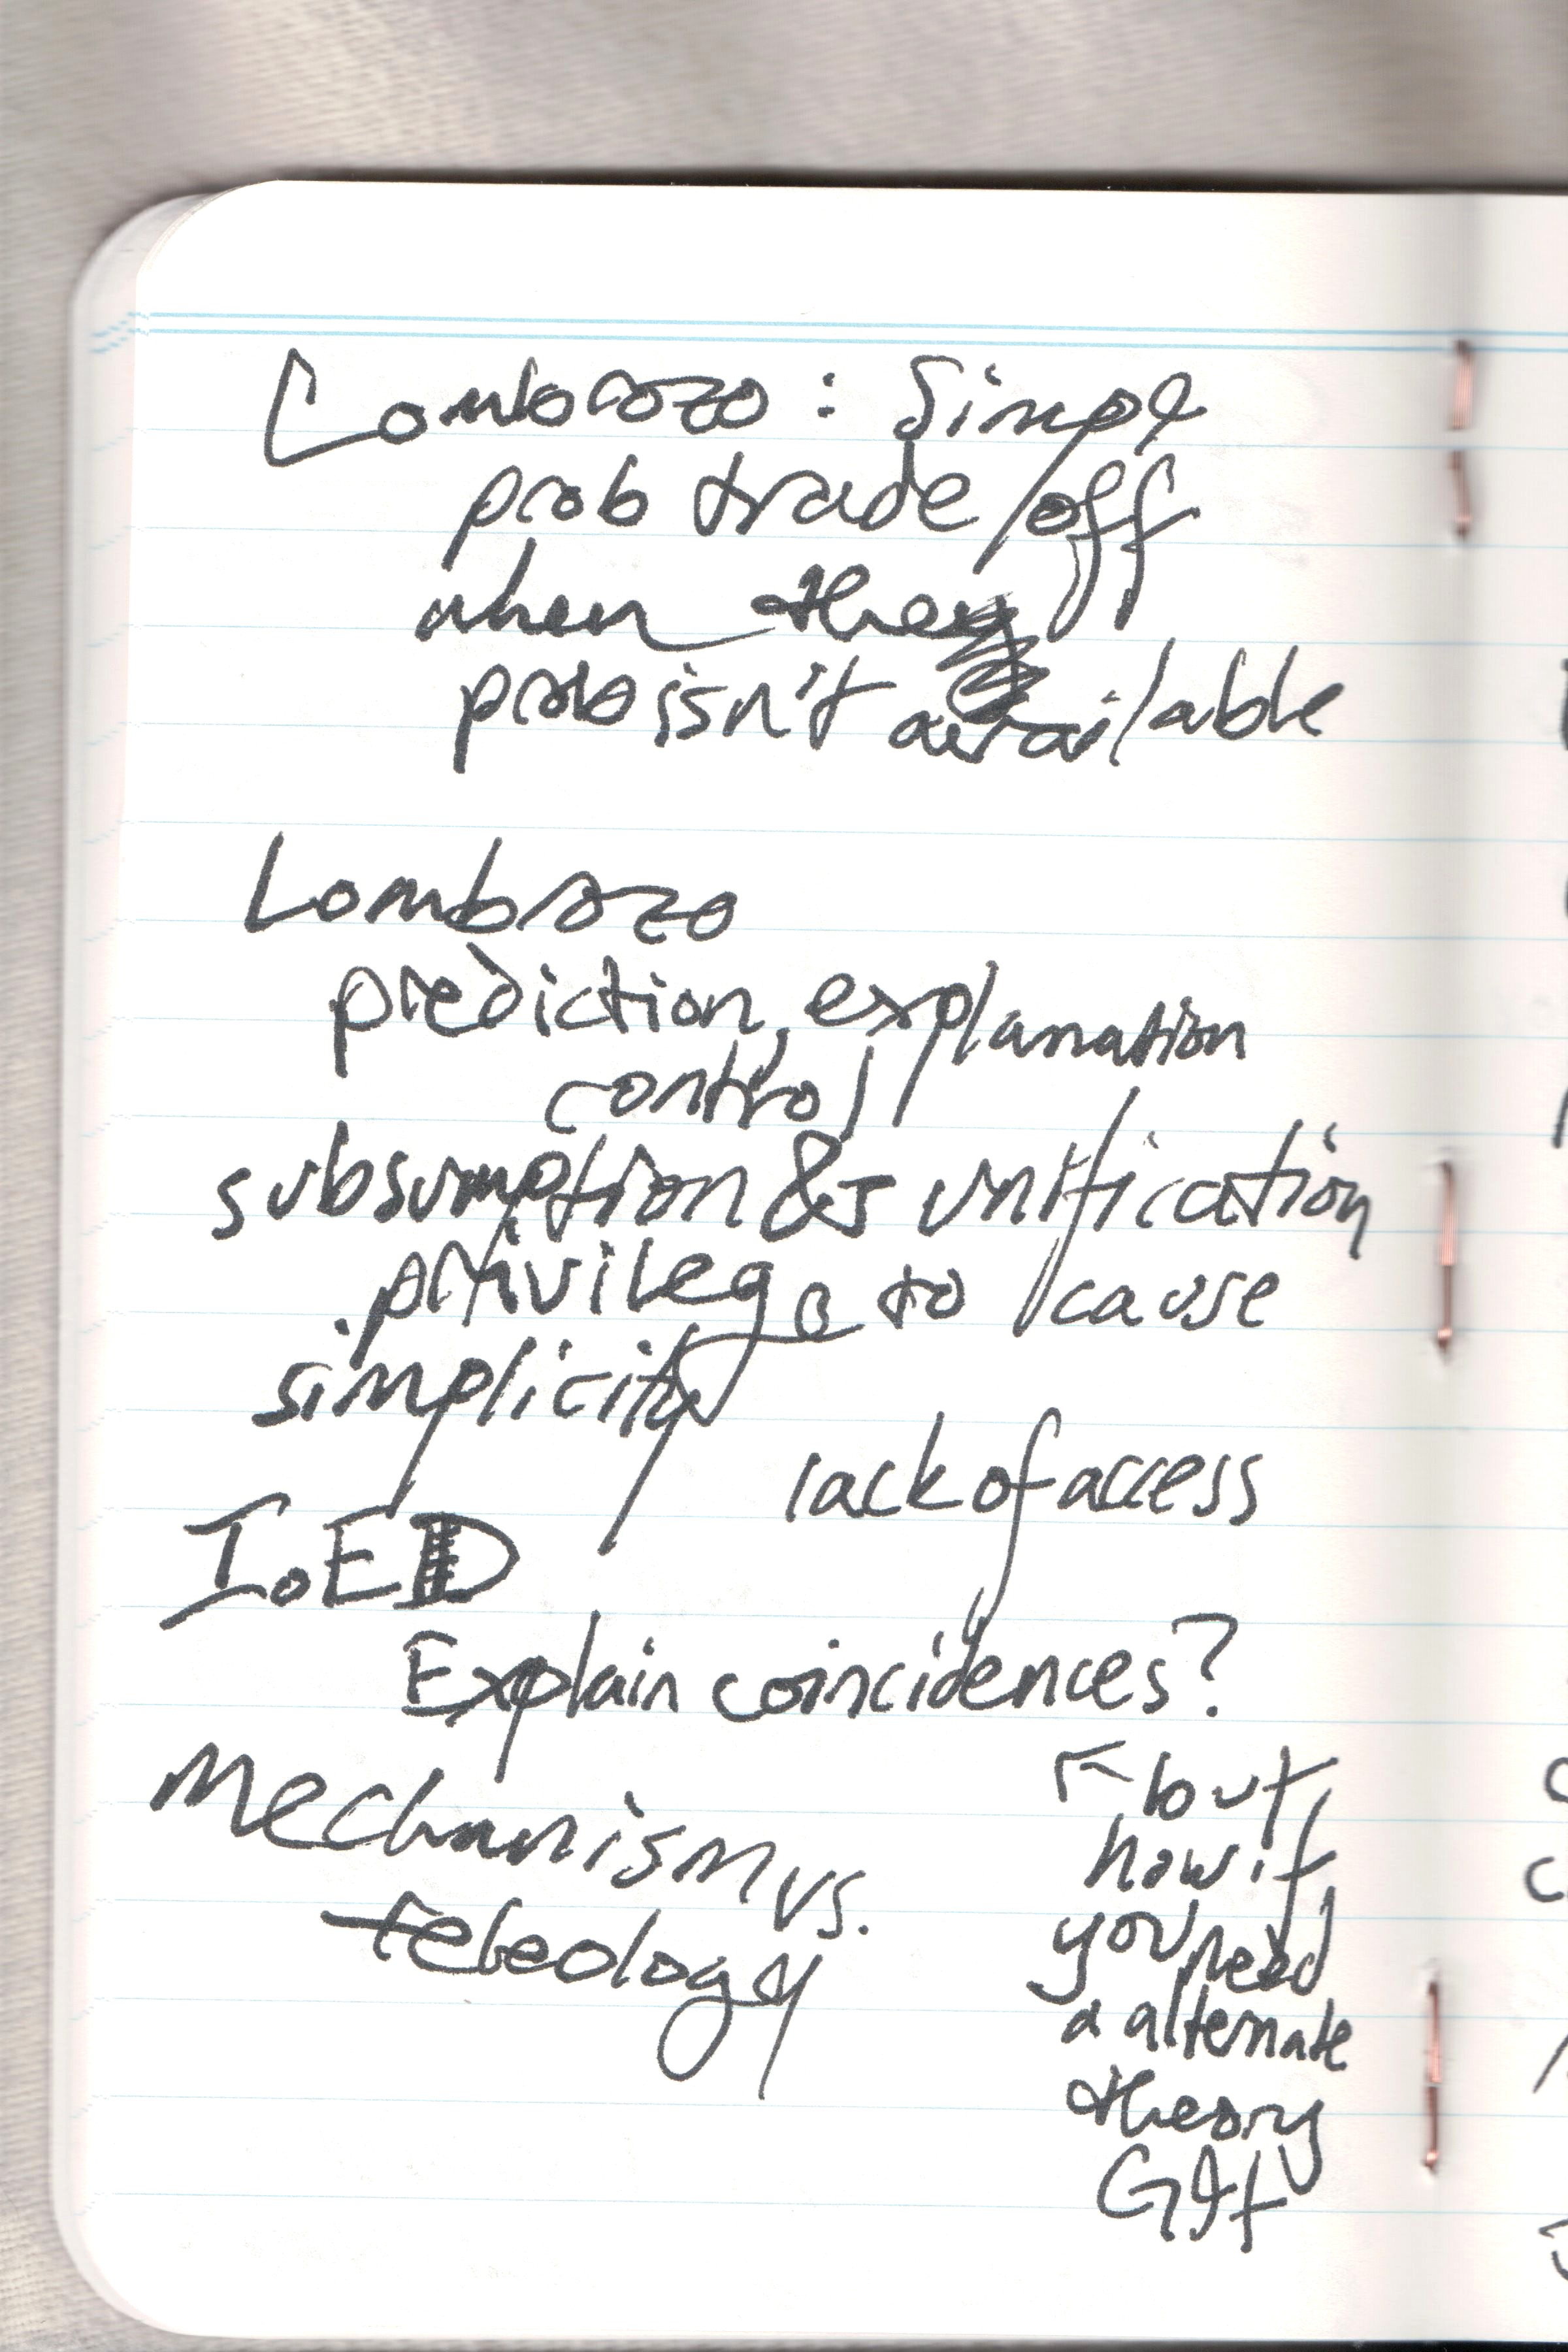 Lombrozo: Simp &
prob trade/off
when they
prob isn't available
Lombrozo
prediction, explanation
control
subsumption & unification
privilege to cause
simplicity
lack of access
IoED
Explain coincidences?
Mechanism vs.
teleology
← but
how if
you need
a alternate
theory